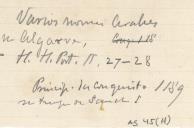 Varios nomes Arabes
no Algarve,
— H. H. Port. II, 27-28
Principio da conquista 1189
no tempo de Sancho I